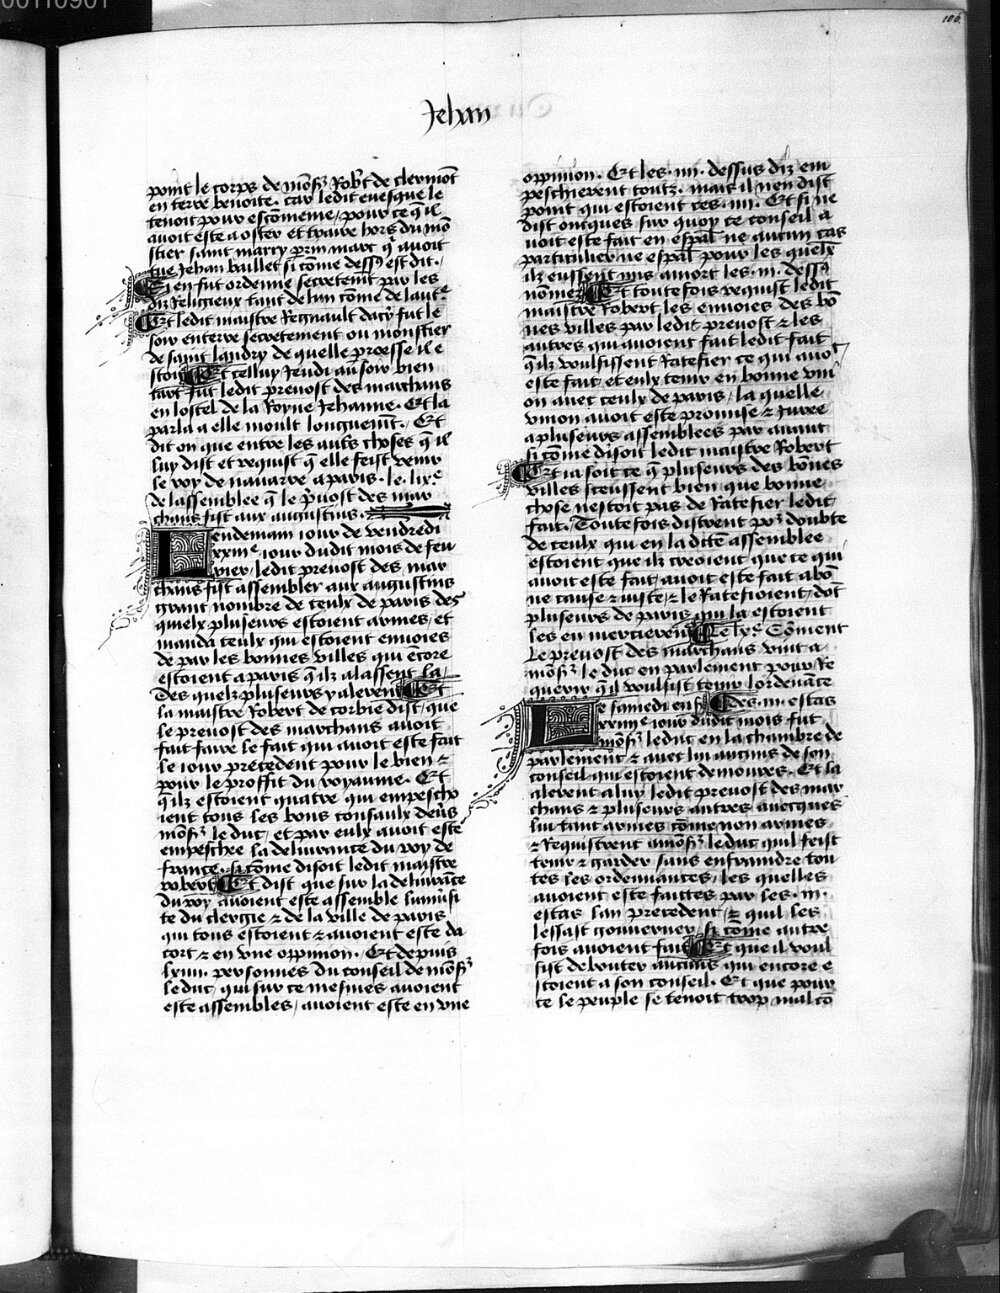 00110901
106
Jehan
point le corps de mons᷑ Rob᷑t de clermont
en terre benoite. car ledit euesque le
tenoit pour escōmenie, pour ce q̄ il
auoit este a oster et traire hors du mo
stier saint marry perrin marc q̄ auoit
tue Jehan baillet si cōme dess᷑ est dit.
Si en fut ordenne secretemēt par les
diz Religieux tant de lun cōme de lautr̄e
Et ledit maistre Regnault dacy fut le
soir enterre secretement ou monstier
de saint landry de quelle proesse il e
stoit Et celluy Jeudi au soir bien
tart fut ledit preuost des marchans
en lostel de la Royne Jehanne. Et la
parla a elle moult longuemēt. Et
dit on que entre les aut᷑s choses q̄ il
luy dist et requist q̄ elle feist venir
le roy de nauarre a paris. le .lix.e
de lassemblee q̄ le p̄uost des mar
chans fist aux augustins.
Lendemain iour de vendredi
xxiiie iour dudit mois de feu
rier, ledit preuost des mar
chans fist assembler aux augustins
grant nombre de ceulx de paris des
quelx plusieurs estoient armes, et
manda ceulx qui estoient enuoies
de par les bonnes villes qui encore
estoient a paris q̄ ilz alassent la
des quelz plusieurs y alerent Et
la maistre Robert de corbie dist, que
le preuost des marchans auoit
fait faire le fait qui auoit este fait
le iour precedent pour le bien ⁊
pour le proffit du royaume. Et
q̄ ilz estoient quatre qui empescho
ient tous les bons consaulx deuers
mons᷑ le duc, et par eulx auoit este
empeschee la deliurance du roy de
france. si cōme disoit ledit maistre
robert Et dist que sur la deliurāce
du roy auoient este assemble luniuersi
te du clergie ⁊ de la ville de paris
qui tous estoient ⁊ auoient este da
cort ⁊ en vne oppinion. Et depuis
.lxiiii. personnes du conseil de mons᷑
le duc, qui sur ce mesmes auoient
este assembles, auoient este en vne
oppinion. Et les .iiii. dessus diz em
peschierent tout. mais il nen dist
point qui estoient ces .iiii. Et si ne
dist oncques sur quoy ce conseil a
uoit este fait en esp̄al ne aucun cas
particulier ne esp̄al pour les quelx
ilz eussent mis a mort les .iii. dess᷑
nōmez Et toutefois requist ledit
maistre Robert les enuoies des bō
nes villes par ledit preuost ⁊ les
autres qui auoient fait ledit fait
q̄ ilz voulsissent Ratefier ce qui auoit
este fait, et eulx tenir en bonne vni
on auec ceulx de paris, la quelle
vnion auoit este promise ⁊ Juree
a plusieurs assemblees par auant
si cōme disoit ledit maistre Robert
Et ia soit ce q̄ plusieurs des bōnes
villes sceussent bien que bonne
chose nestoit pas de Ratefier ledit
fait. Toute fois distrent po᷑ doubte
de ceulx qui en la dite assemblee
estoient que ilz creoient que ce qui
auoit este fait auoit este fait a bō
ne cause ⁊ iuste, ⁊ le Ratefioient, dōt
plusieurs de paris qui la estoient
les en mercierent Le lxe Cōment
Le preuost des marchans vint a
mons᷑ le duc en parlement pour Re
querir q̄ il voulsist tenir lordenāce
Le samedi ens᷑ des .iii. estas
xxiiiie iour dudit mois fut
mons᷑ le duc en la chambre de
parlement ⁊ auec lui aucuns de son
conseil qui estoient demoures. Et la
alerent a luy ledit preuost des mar
chans ⁊ plusieurs autres auecques
lui tant armes cōme non armes
⁊ Requistrent a mons᷑ le duc quil feist
tenir ⁊ garder sans enfraindre tou
tes les ordenances, les quelles
auoient este faictes par les .iii.
estas lan precedent, ⁊ quil les
lessast gouuerner si cōme autre
fois auoient fait Et que il voul
sist debouter aucuns qui encore e
stoient a son conseil. Et que pour
ce le peuple se tenoit trop mal cō